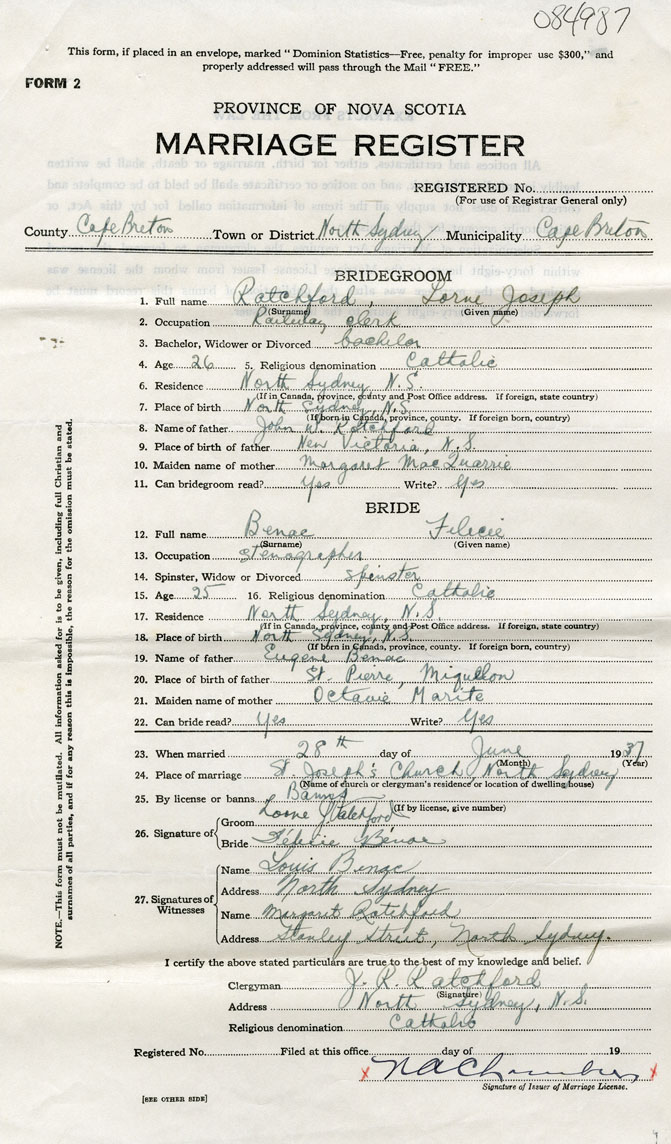 084987
This form, if placed in an envelope, marked "Dominion Statistics—Free, penalty for improper use $300," and
properly addressed will pass through the Mail "FREE."
FORM 2
PROVINCE OF NOVA SCOTIA
MARRIAGE REGISTER
REGISTERED No.
(For use of Registrar General only)
County Cape Breton Town or District North Sydney Municipality Cape Breton
BRIDEGROOM
1. Full name Ratchford, Lorne Joseph
(Surname) (Given name)
2. Occupation Railway clerk
3. Bachelor, Widower or Divorced bachelor
4. Age 26 5. Religious denomination Catholic
6. Residence North Sydney N.S.
(If in Canada, province, county and Post Office address. If foreign, state country)
7. Place of birth North Sydney, N.S.
(If born in Canada, province, county. If foreign born, country)
8. Name of father John W. Ratchford
9. Place of birth of father New Victoria, N.S.
10. Maiden name of mother Margaret MacQuarrie
11. Can bridegroom read? Yes Write? Yes
BRIDE
12. Full name Benac Felicie
(Surname) (Given name)
13. Occupation stenographer
14. Spinster, Widow or Divorced spinster
15. Age 25 16. Religious denomination Catholic
17. Residence North Sydney, N.S.
(If in Canada, province, county and Post Office address. If foreign, state country)
18. Place of birth North Sydney, N.S.
(If born in Canada, province, county. If foreign born, country)
19. Name of father Eugene Benac
20. Place of birth of father St. Pierre, Miqullon
21. Maiden name of mother Octavie Marite
22. Can bride read? Yes Write? Yes
23. When married 28th day of June 1937
(Month) (Year)
24. Place of marriage St. Joseph's Church, North Sydney
(Name of church or clergyman's residence or location of dwelling house)
25. By license or banns Banns
(If by license, give number)
26. Signature of
Groom Lorne Ratchford
Bride Félicie Bénac
27. Signatures of Witnesses
Name Louis Benac
Address North Sydney
Name Margaret Ratchford
Address Stanley Street, North Sydney.
I certify the above stated particulars are true to the best of my knowledge and belief.
Clergyman J. R. Ratchford
(Signature)
Address North Sydney, N.S.
Religious denomination Catholic
Registered No. Filed at this office day of 19
x N A Chambers x
Signature of Issuer of Marriage License.
[SEE OTHER SIDE]
NOTE.—This form must not be mutilated. All information asked for is to be given, including full Christian and
surnames of all parties, and if for any reason this is impossible, the reason for the omission must be stated.